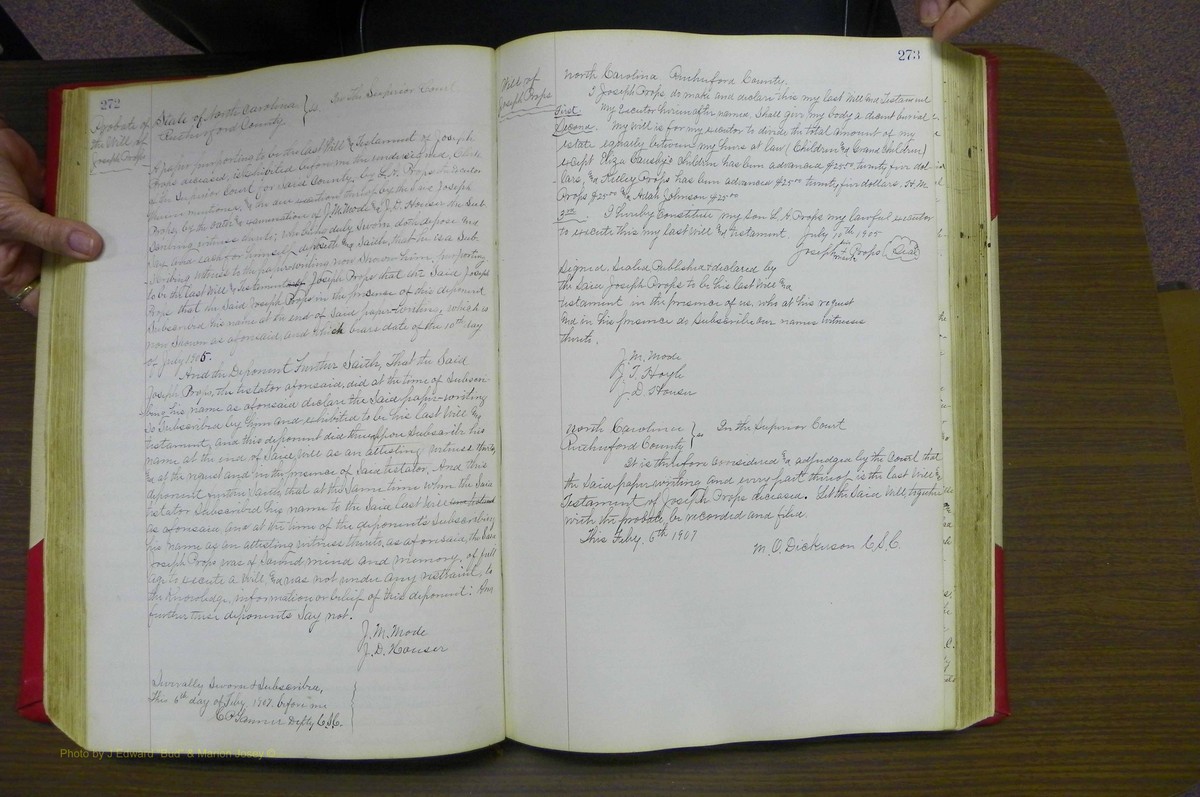 272
Probate of
the Will of
Joseph Props
State of North Carolina } ss In the Superior Court
Rutherford County
A paper purporting to be the last Will & Testament of Joseph
Props deceased, is exhibited before me the undersigned, Clerk
of the Superior Court for said County, by L. H. Props the Executor
therein mentioned, & the due execution thereof by the said Joseph
Props, by the oath & examination of J. M. Mode & J. D. Houser the Sub-
scribing witnesses thereto; who being duly sworn doth depose and
say and each for himself deposeth & Saith, that he is a Sub-
scribing witness to the paper writing now shown him, purporting
to be the last Will & Testament of Joseph Props that the Said Joseph
Props that the Said Joseph Props in the presence of this deponent
Subscribed his name at the end of Said paper writing, which is
now shown as aforesaid, and which bears date of the 10th day
of July 1905.
And the Deponent Further Saith, That the Said
Joseph Props, the testator aforesaid, did at the time of Subscri-
bing his name as aforesaid declare the Said paper-writing
so Subscribed by him and exhibited to be his last Will &
Testament, and this deponent did thereupon Subscribe his
name at the end of Said Will as an attesting witness thereto,
& at the request and in the presence of Said testator. And this
deponent further Saith that at the Same time when the Said
testator Subscribed his name to the Said last Will
as aforesaid, and at the time of the deponent's Subscribing
his name as an attesting witness thereto, as aforesaid, the Said
Joseph Props was of Sound mind and memory, of full
age to execute a Will, & was not under any restraint, to
the Knowledge, information or belief of this deponent: And
further these deponents Say not.
J. M. Mode
J. D. Houser
Severally Sworn & Subscribed,
this 6th day of Feby. 1907. before me
C. P. Tanner Depty C.S.C.
273
Will of
Joseph Props
North Carolina Rutherford County.
I Joseph Props do make and declare this my last Will and Testament
First My Executor hereinafter named, Shall give my body a decent burial
Second. My will is for my executor to divide the total amount of my
estate equally between my heirs at law (Children & Grand children)
except Eliza Causby's Children has been advanced $25.00 twenty five dol-
lars, & Kelley Props has been advanced $25.00 twenty five dollars. H. M.
Props $25.00 & Adah Johnson $25.00
3rd I hereby Constitute my son L. H. Props my lawful executor
to execute this my last Will & Testament. July 10th 1905
Joseph Props Seal
mark
Signed, Sealed, Published & declared by
the Said Joseph Props to be his last Will &
Testament in the presence of us, who at his request
and in his presence do Subscribe our names witnesses
thereto.
J. M. Mode
J. D. Houser
North Carolina } ss In the Superior Court
Rutherford County
It is therefore considered & adjudged by the Court that
the Said paper writing and every part thereof is the last Will &
Testament of Joseph Props deceased. Let the Said Will, together
with the probate, be recorded and filed.
This Feby. 6th 1907
M. O. Dickerson C.S.C.
Photo by J Edward "Bud" & Marion Josey ©